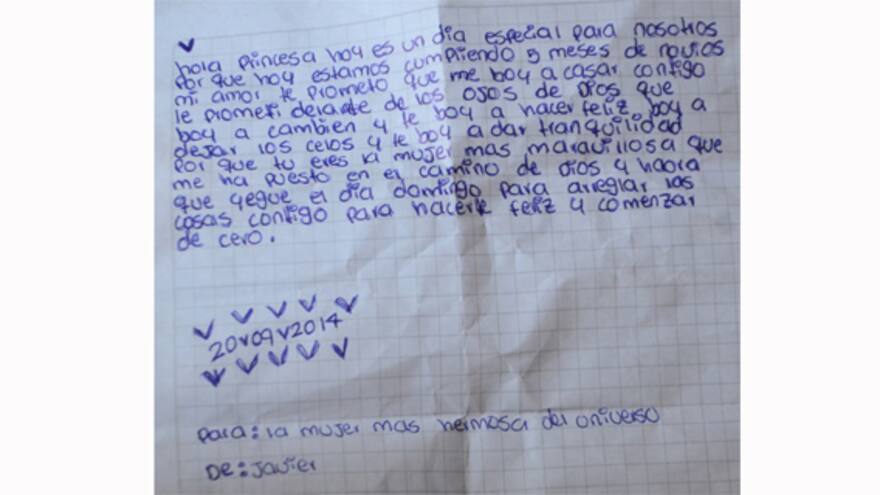 hola princesa hoy es un dia especial para nosotros
Por que hoy estamos cumpliendo 5 meses de novios
mi amor te prometo que me boy a casar contigo
le prometi delante de los ojos de Dios que
boy a cambien y te boy a hacer feliz. boy a
dejar los celos y te boy a dar tranquilidad
Por que tu eres la mujer mas maravillosa que
me ha puesto en el camino de dios y haora
que yegue el dia domingo para arreglar las
cosas contigo para hacerte feliz y comenzar
de cero.
20v09v2014
para: la mujer mas hermosa del universo
De: Javier